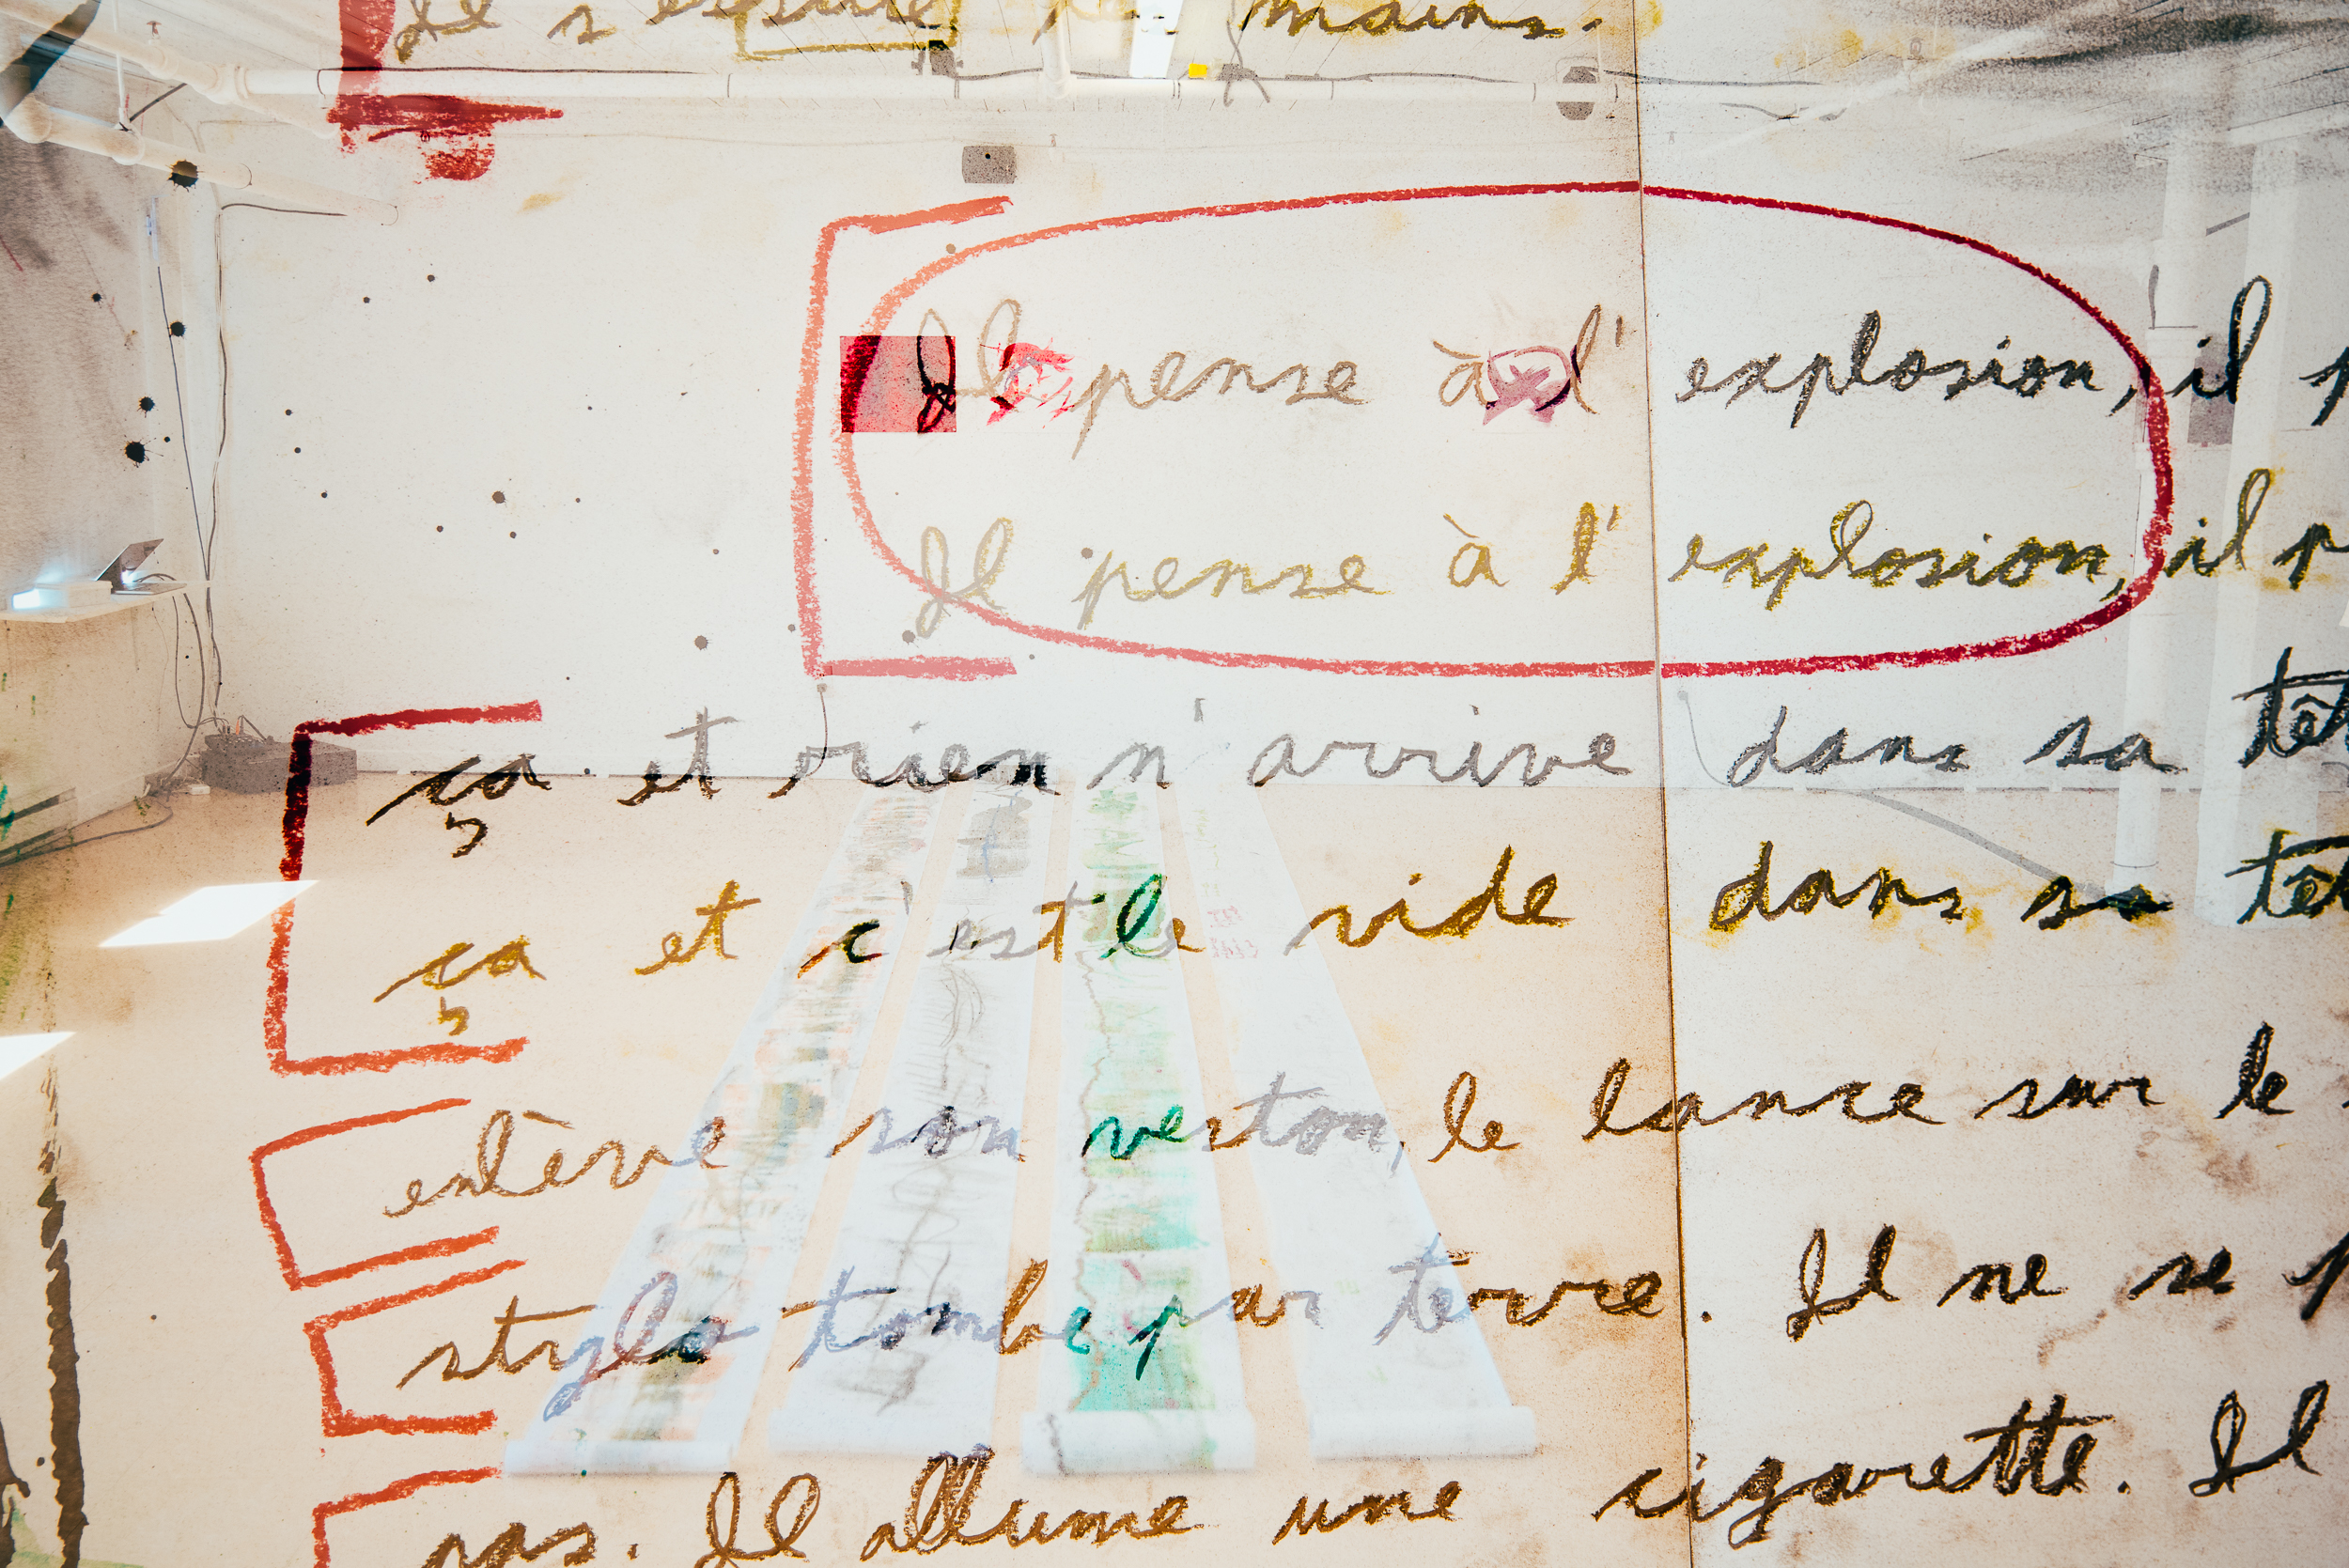 Il s'essuie les mains.
Il pense à l'explosion, il p
Il pense à l'explosion, il p
ça et rien n'arrive dans sa têt
ça et c'est le vide dans sa têt
enlève son veston, le lance sur le
stylo tombe par terre. Il ne se p
pas. Il allume une cigarette. Il